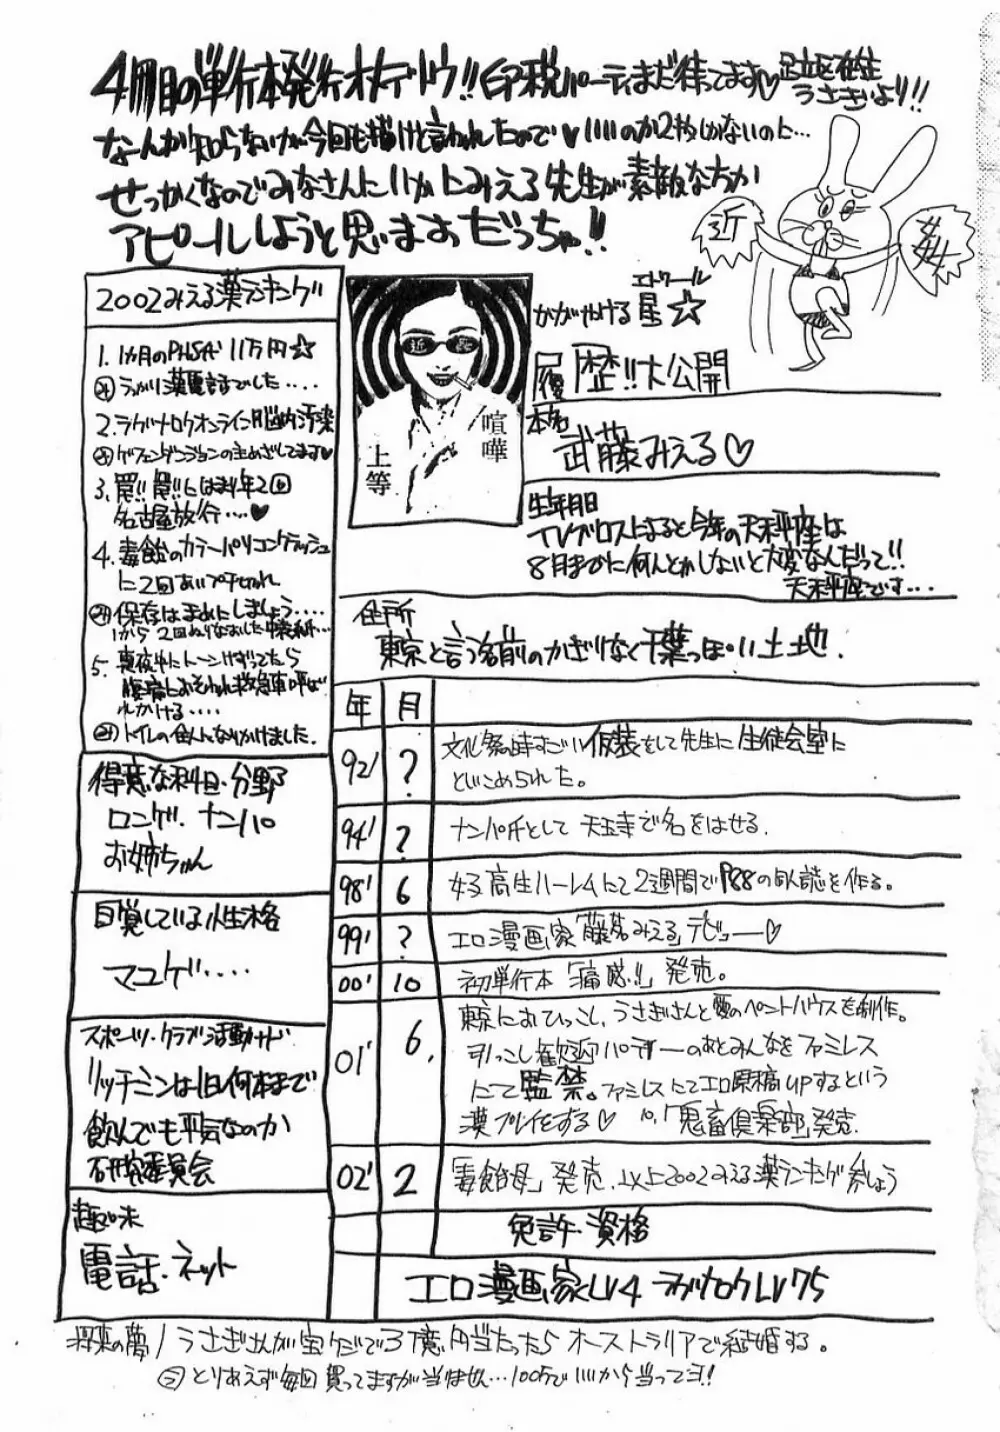 4冊目の単行本発行オメデトウ!!印税パーティまだ待ってます♡足立区在住
うさぎいより!!
なーんか知らないが今回も描けと言われたので♡いいのか2枚しかないのに…
せっかくなのでみなさんにいかにみえる先生が素敵な方か
アピールしようと思いますだっちゃ!!
近
2002みえる漢ランキング
1. 1カ月のPHS代 11万円☆
うっかり漢電話でした....
2. ラグナロクオンライン脳内汚染
ゲフェンダンジョンの主めざしてます♥
3. 罠!!罠!!にはまり年2回
名古屋放行....♥
4. 毒飴のカラーパソコンクラッシュ
に2回あいプチ切れ
保存はまめにしましょう....
5. 真夜中にトーンけずってたら
腹痛におそわれ救急車呼ば
れかける....
トイレの住人になりかけました.
得意な科目・分野
ロンゲ.ナンパ
お姉ちゃん
自覚している性格
マユゲ....
スポーツ・クラブ活動など
リッチミンは1日何本まで
飲んでも平気なのか
研究委員会
趣味
電話.ネット
喧嘩
上等
エトワール
かがやける星☆
履歴!!大公開
本名
武藤みえる♡
生年月日
TVブロスによると今年の天秤座は
8月までに何とかしないと大変なんだって!!
天秤座です...
住所
東京と言う名前のかぎりなく千葉っぽい土地.
年 月
92' ? 文化祭の時すごい仮装をして先生に生徒会室に
とじこめられた。
94' ? ナンパ師として天王寺で名をはせる.
98' 6 女子高生ハーレムにて2週間でP88の同人誌を作る。
99' ? エロ漫画家「藤若みえる」デビュー♡
00' 10 初単行本「痛感!!」発売。
01' 6. 東京におひっこし,うさぎさんと愛のペントハウスを制作。
引っこし歓迎パーティーのあとみんなをファミレス
にて監禁。ファミレスにてエロ原稿upするという
漢プレイをする♡ 10.「鬼畜倶楽部」発売.
02' 2 「毒飴母」発売.以上2002みえる漢ランキング参しょう
免許・資格
エロ漫画家LV4 ラグナロクLV75
将来の夢/うさぎさんが宝クジで3億円当たったらオーストラリアで結婚する。
う とりあえず毎回買ってますが当りません...100万でいいから当ってヨ!!